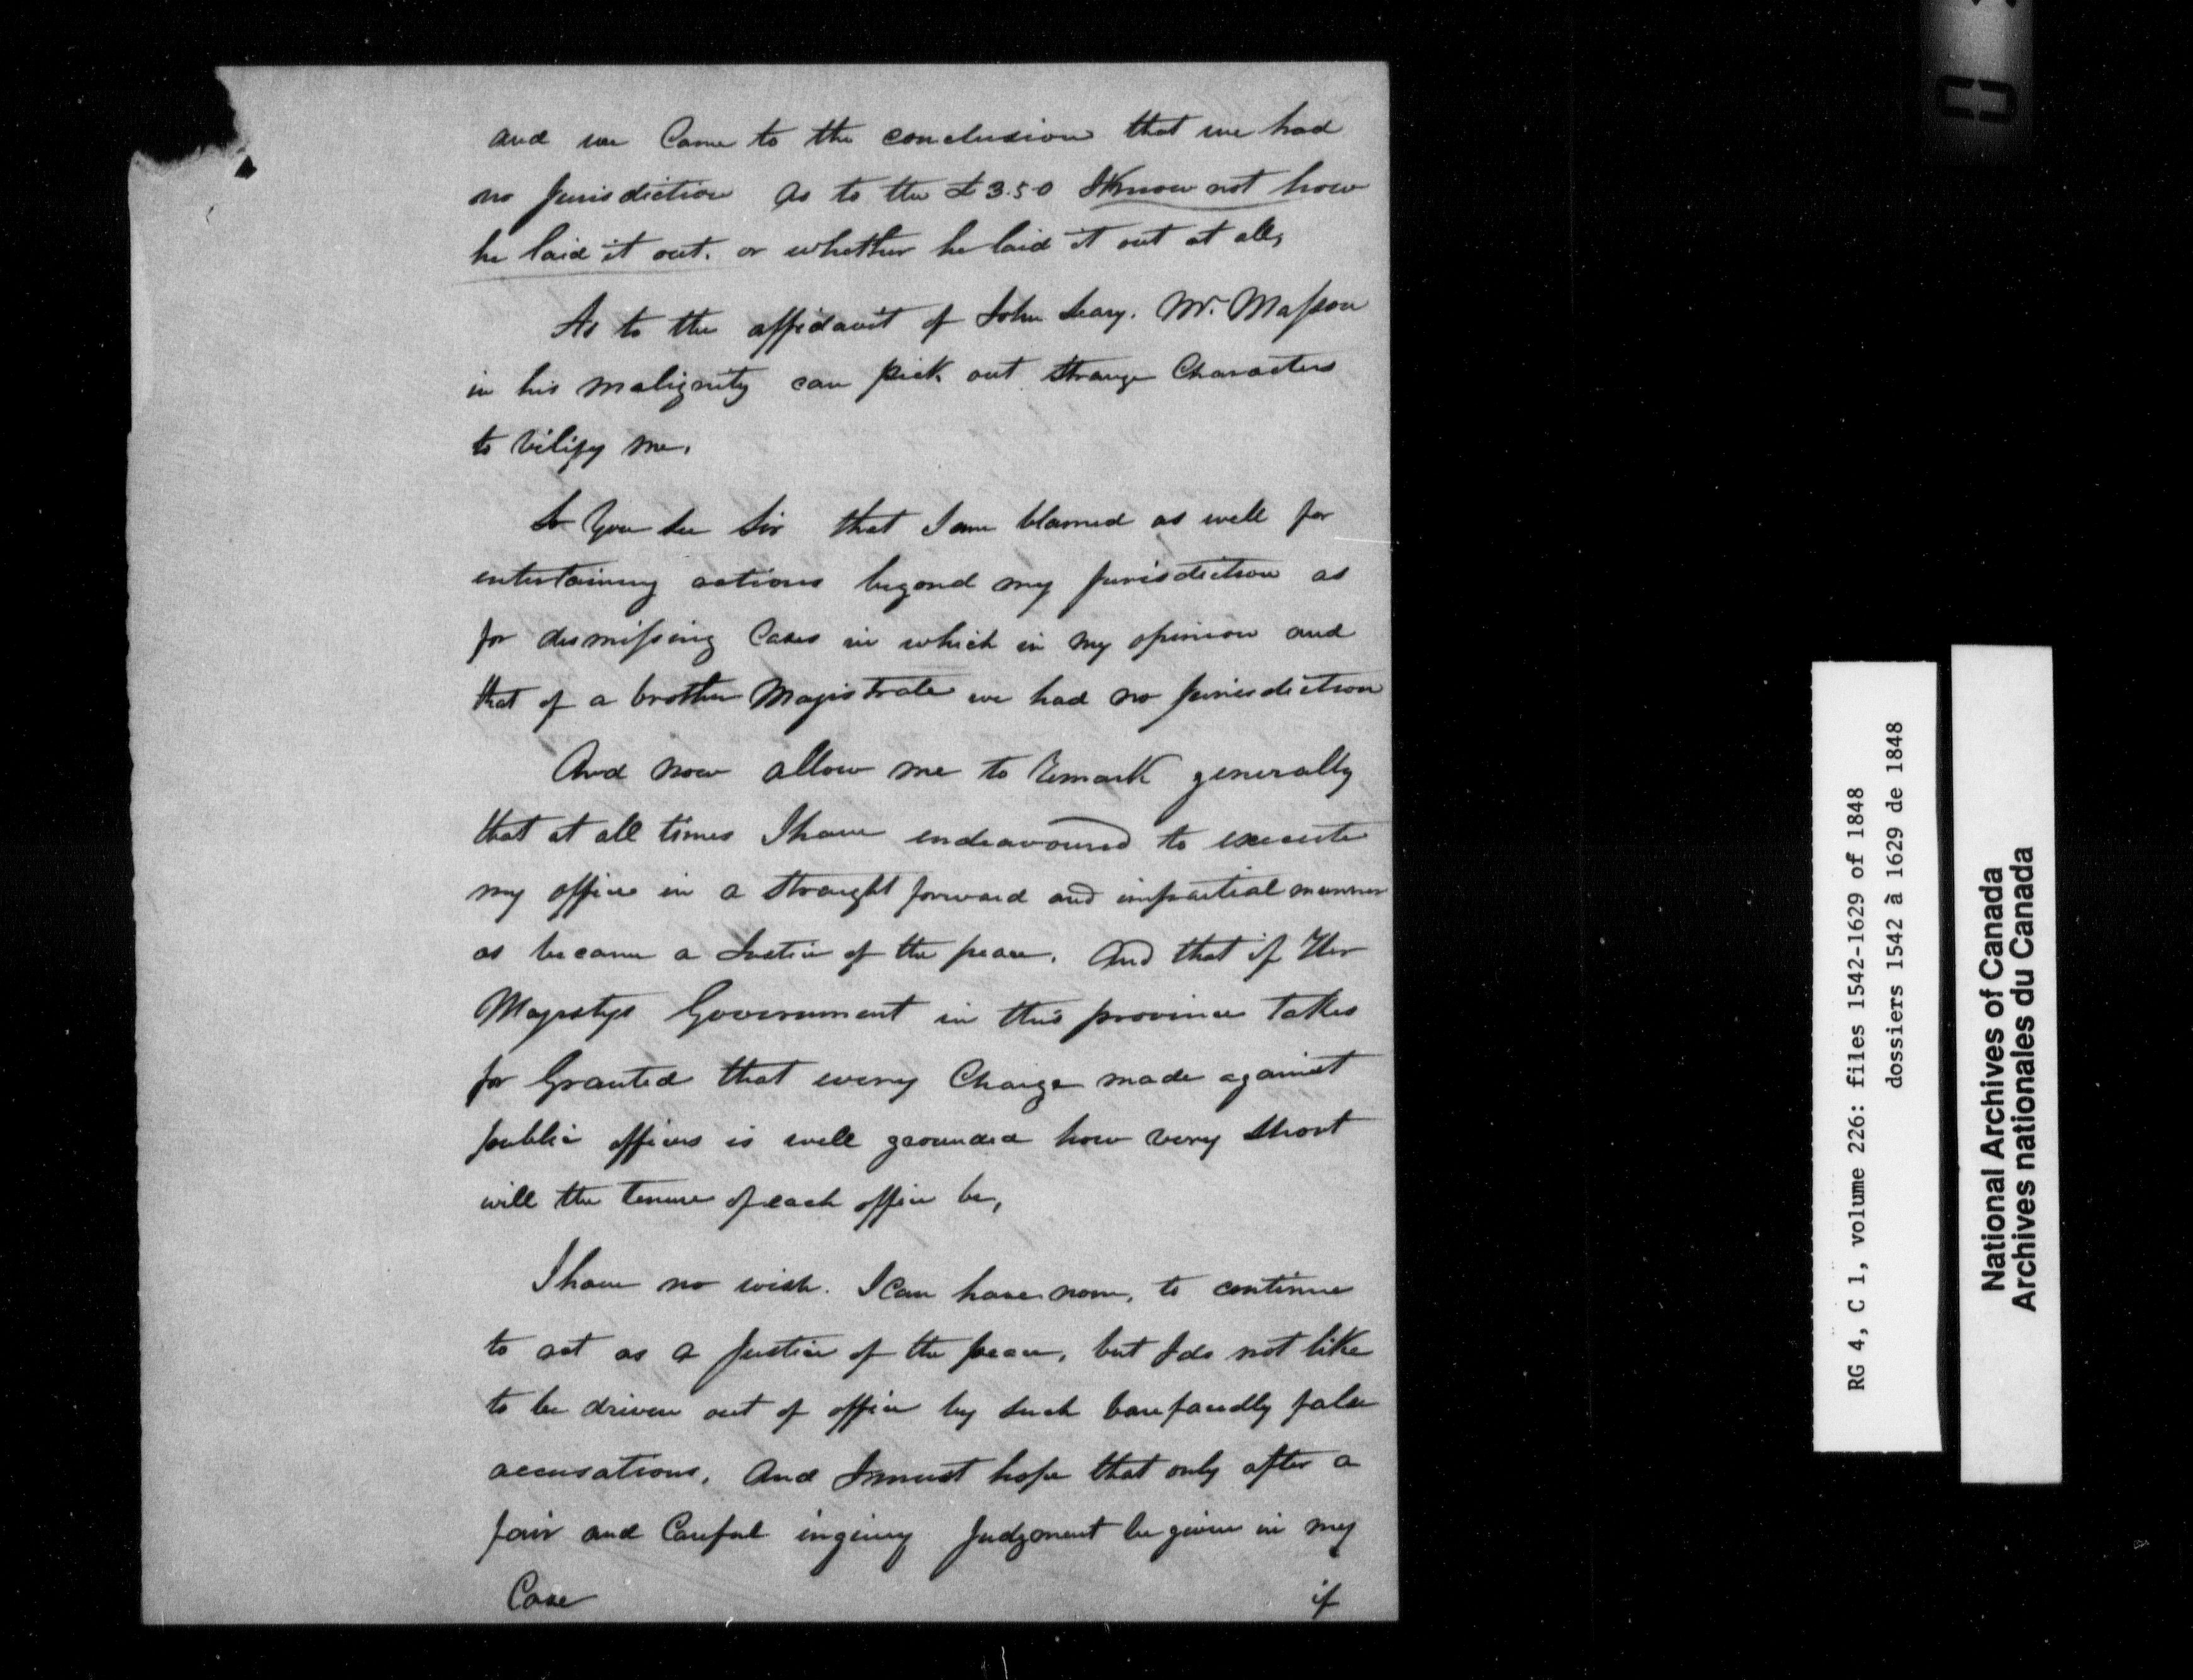 and we Came to the conclusion that we had
no Jurisdiction As to the £3.5.0 I Know not how
he laid it out. or whether he laid it out at all,
As to the affidavit of John Leary. Mr. Masson
in his malignity can pick out strange Characters
to vilify me.
So You see Sir that I am blamed as well for
entertaining actions beyond my Jurisdiction as
for dismissing Cases in which in my opinion and
that of a brother Magistrate we had no Jurisdiction
And now allow me to Remark generally
that at all times I have endeavoured to execute
my office in a straight forward and impartial manner
as became a Justice of the peace. And that if Her
Majestys Government in this province takes
for Granted that every Charge made against
public officers is well grounded how very short
will the tenure of each office be,
I have no wish. I Can have none, to continue
to act as a Justice of the peace, but I do not like
to be driven out of office by such barefacedly false
accusations. And I must hope that only after a
fair and Careful inquiry Judgment be given in my
Case if
RG 4, C 1, volume 226: files 1542-1629 of 1848
dossiers 1542 à 1629 de 1848
National Archives of Canada
Archives nationales du Canada